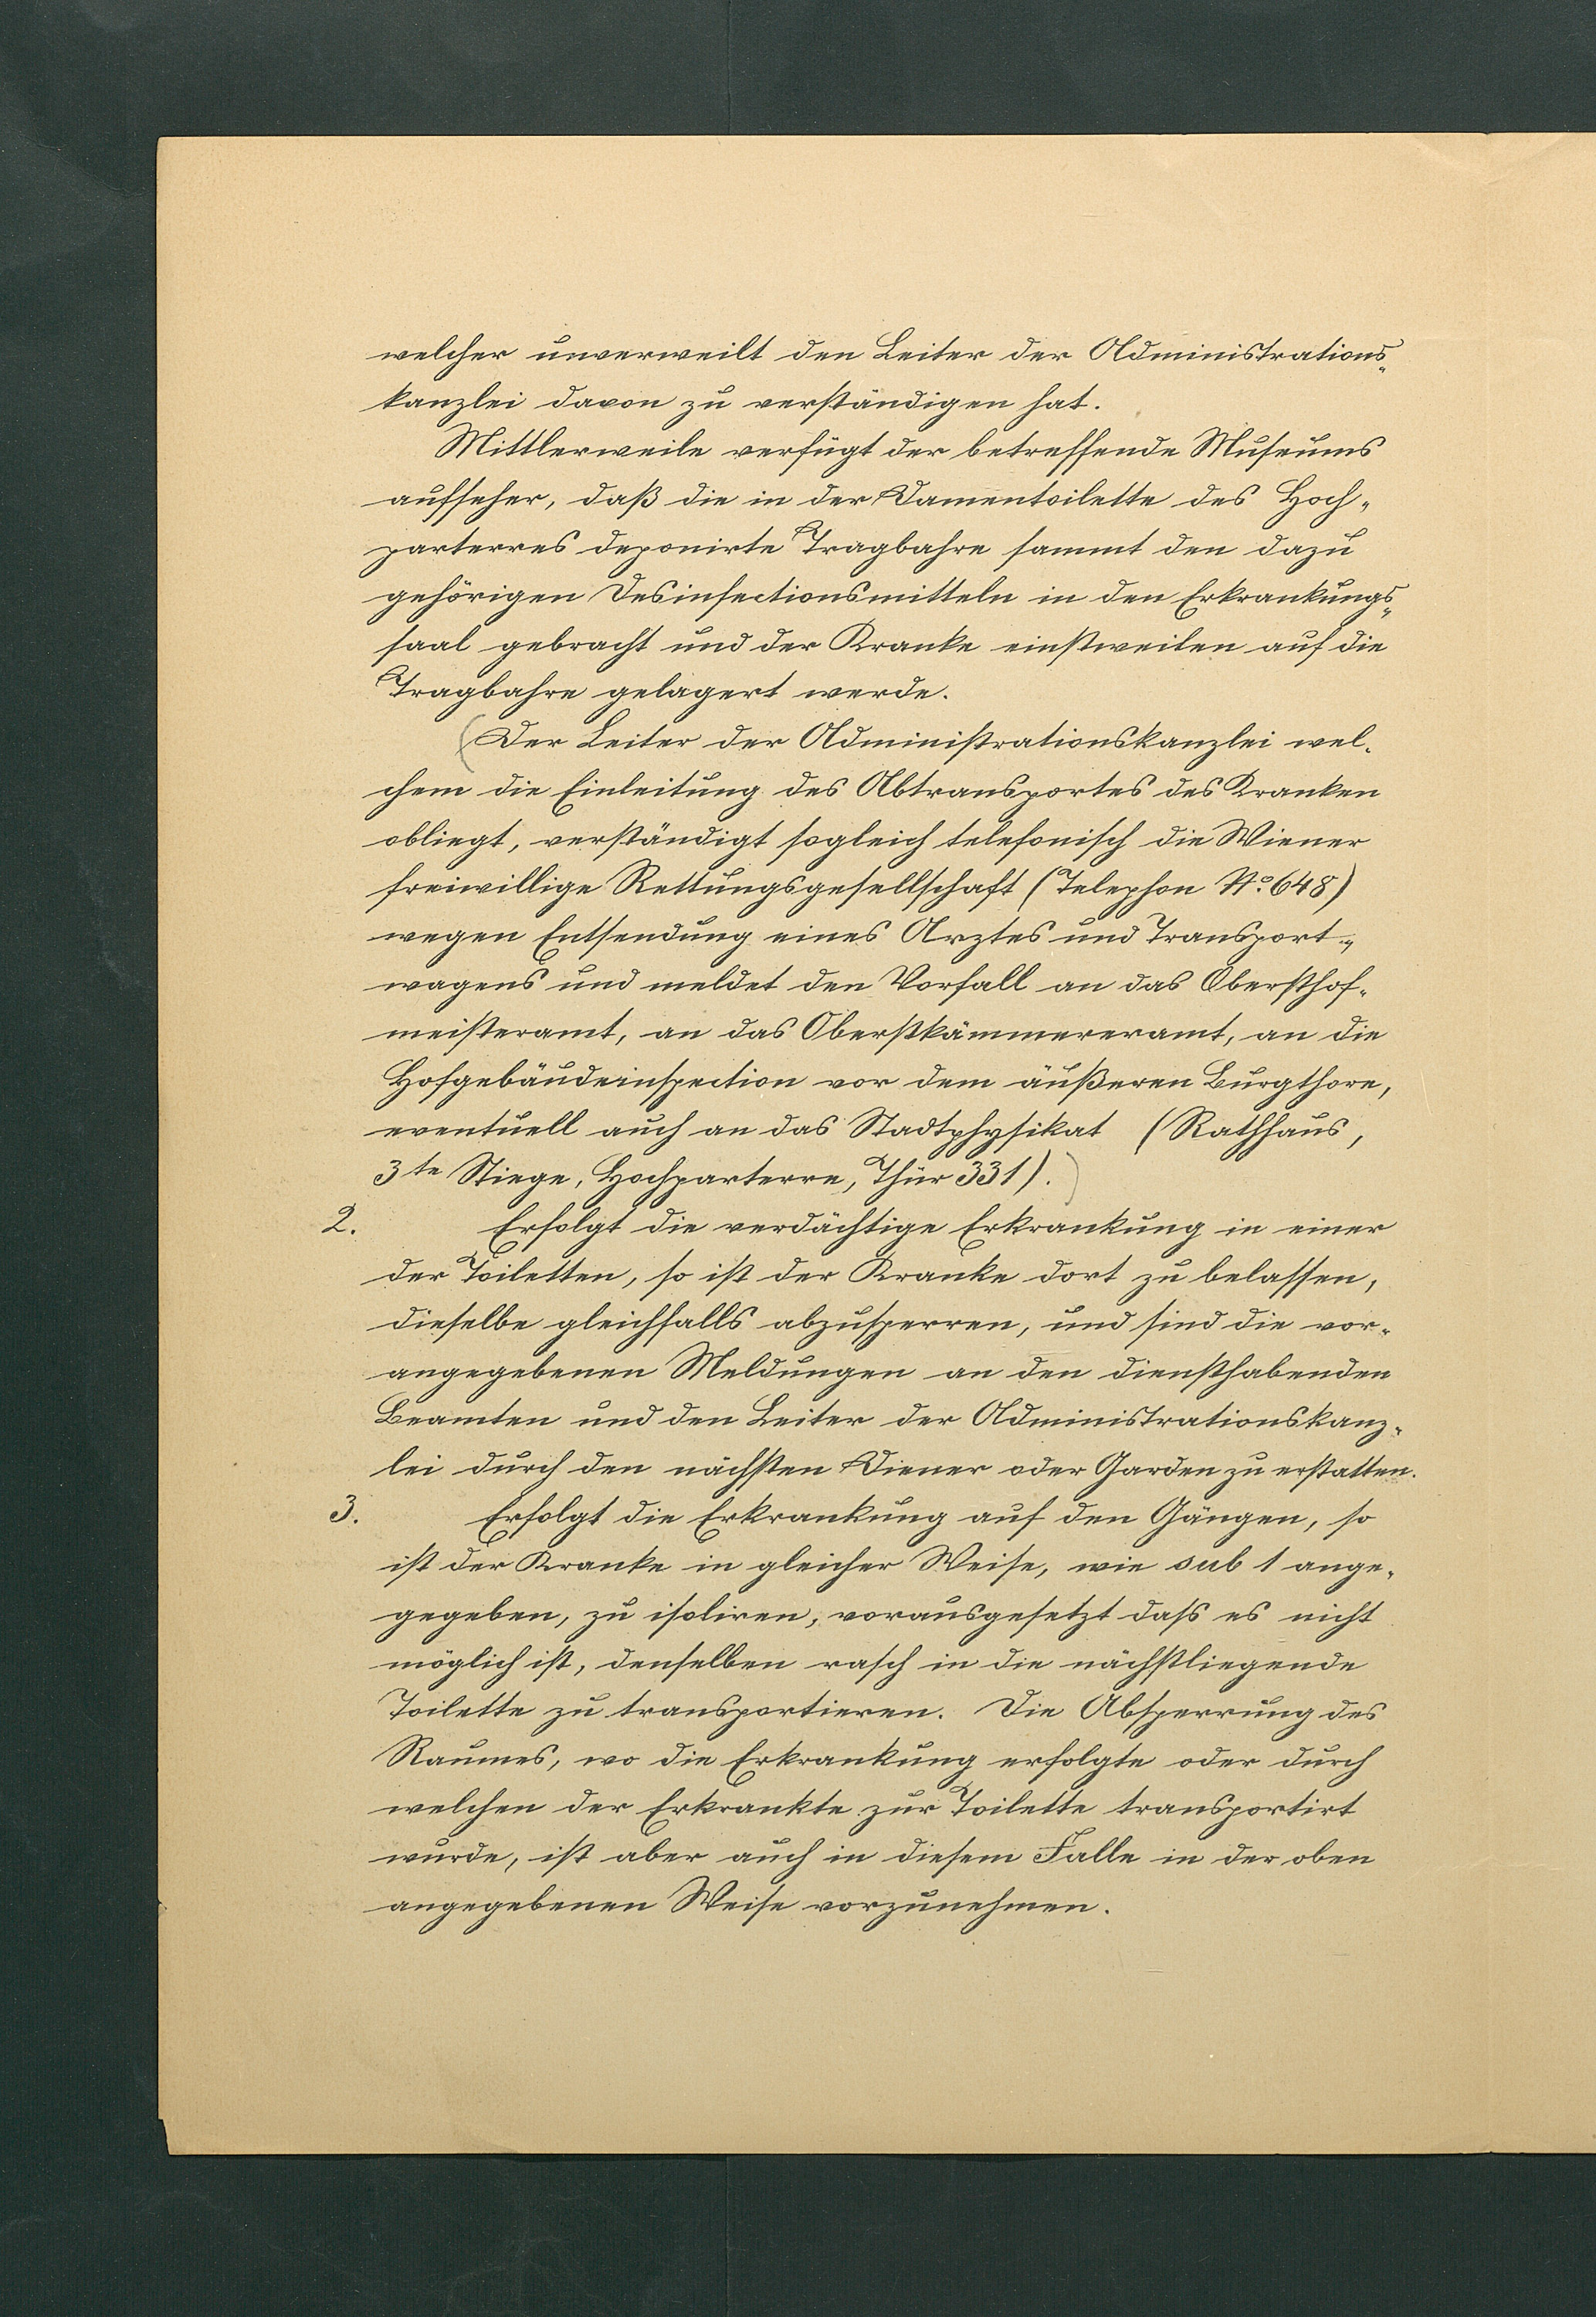 welcher unverweilt den Leiter der Administrations-
kanzlei davon zu verständigen hat.
Mittlerweile verfügt der betreffende Museums
aufseher, daß die in der Damentoilette des Hoch-
parterres deponirte Tragbahre sammt den dazu
gehörigen Desinfectionsmitteln in den Erkrankungs-
saal gebracht und der Kranke einstweilen auf die
Tragbahre gelagert werde.
(Der Leiter der Administrationskanzlei wel-
chem die Einleitung des Abtransportes des Kranken
obliegt, verständigt sogleich telefonisch die Wiener
freiwillige Rettungsgesellschaft (Telephon No. 648)
wegen Entsendung eines Arztes und Transport-
wagens und meldet den Vorfall an das Obersthof-
meisteramt, an das Oberstkämmereramt, an die
Hofgebäudeinspection vor dem äußeren Burgthore,
eventuell auch an das Stadtphysikat (Rathhaus,
3te Stiege, Hochparterre, Thür 331).)
2. Erfolgt die verdächtige Erkrankung in einer
der Toiletten, so ist der Kranke dort zu belassen,
dieselbe gleichfalls abzusperren, und sind die vor-
angegebenen Meldungen an den diensthabenden
Beamten und den Leiter der Administrationskanz-
lei durch den nächsten Diener oder Garden zu erstatten.
3. Erfolgt die Erkrankung auf den Gängen, so
ist der Kranke in gleicher Weise, wie sub 1 ange-
gegeben, zu isoliren, vorausgesetzt dass es nicht
möglich ist, denselben rasch in die nächstliegende
Toilette zu transportieren. Die Absperrung des
Raumes, wo die Erkrankung erfolgte oder durch
welchen der Erkrankte zur Toilette transportirt
wurde, ist aber auch in diesem Falle in der oben
angegebenen Weise vorzunehmen.